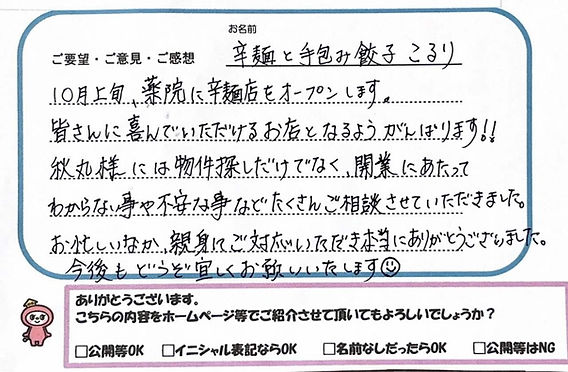 お名前
ご要望・ご意見・ご感想 辛麺と手包み餃子 こるり
10月上旬、薬院に辛麺店をオープンします。
皆さんに喜んでいただけるお店となるようがんばります!!
秋丸様には物件探しだけでなく、開業にあたって
わからない事や不安な事などたくさんご相談させていただきました。
お忙しいなか、親身にご対応いただき本当にありがとうございました。
今後もどうぞ宜しくお願いいたします☺
ありがとうございます。
こちらの内容をホームページ等でご紹介させて頂いてもよろしいでしょうか?
□公開等OK □イニシャル表記ならOK □名前なしだったらOK □公開等はNG